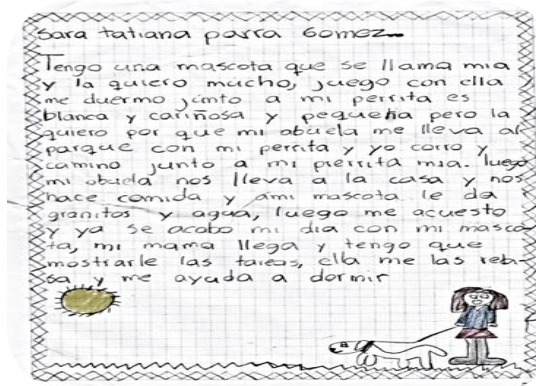 Sara tatiana parra Gomez
Tengo una mascota que se llama mia
y la quiero mucho, juego con ella
me duermo junto a mi perrita es
blanca y cariñosa y pequeña pero la
quiero por que mi abuela me lleva al
parque con mi perrita y yo corro y
camino junto a mi pierrita mia. luego
mi abuela nos lleva a la casa y nos
hace comida y ami mascota le da
granitos y agua, luego me acuesto
y ya se acabo mi dia con mi masco-
ta, mi mama llega y tengo que
mostrarle las tareas, ella me las rebi-
sa y me ayuda a dormir